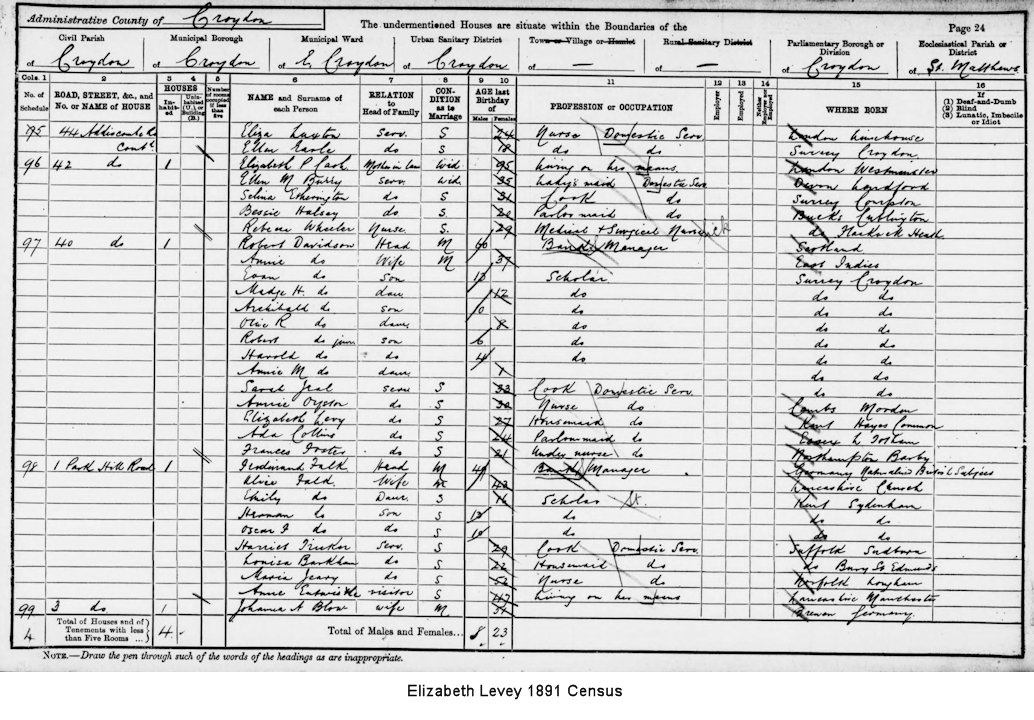 Administrative County of Croydon
The undermentioned Houses are situate within the Boundaries of the
Page 24
Civil Parish Municipal Borough Municipal Ward Urban Sanitary District Town or Village or Hamlet Rural Sanitary District Parliamentary Borough or Division Ecclesiastical Parish or District
of Croydon of Croydon of E. Croydon of Croydon of — of — of Croydon of St. Matthews
Cols. 1 2 3 4 5 6 7 8 9 10 11 12 13 14 15 16
No. of Schedule ROAD, STREET, &c., and No. or NAME of HOUSE HOUSES Inhabited Uninhabited (U.), or Building (B.) Number of rooms occupied if less than five NAME and Surname of each Person RELATION to Head of Family CONDITION as to Marriage AGE last Birthday of Males Females PROFESSION or OCCUPATION Employer Employed Neither Employer nor Employed WHERE BORN If (1) Deaf-and-Dumb (2) Blind (3) Lunatic, Imbecile or Idiot
95 44 Addiscombe Rd Eliza Luxton Serv. S 24 Nurse Domestic Serv. London Limehouse
cont. Ellen Earle do S 18 do do Surrey Croydon
96 42 do 1 Elizabeth P. Mother in law Wid. 95 Living on her means London Westminster
Ellen M Burry serv wid. 35 Lady's maid Domestic Serv. Devon
Selina Etherington do S 31 Cook do Surrey Compton
Bessie Halsey do S 20 Parlormaid do Bucks Cublington
Rebecca Wheeler Nurse. S. 29 Medical & Surgical Nurse do
97 40 do 1 Robert Davidson Head M 40 Bank Manager Scotland
Annie do Wife M 37 East Indies
Evan do Son 13 Scholar Surrey Croydon
Madge H. do daur 12 do do do
Archibald do son 10 do do do
Olive R do daur 8 do do do
Robert do junr son 6 do do do
Harold do do 4 do do do
Annie M do daur 1 do do
Sarah serv S 33 Cook Domestic Serv. do do
Annie Oyston do S 30 Nurse do Morden
Elizabeth Levy do S 27 Housemaid do Kent Hayes Common
Ada Collins do S 24 Parlourmaid do Essex
Frances Foster do S 21 Under nurse do Northampton Barby
98 1 Park Hill Road 1 Ferdinand Falk Head M 49 Bank Manager Germany Naturalised British Subject
Alice Falk Wife M 43 Lancashire Church
Emily do Daur. S 16 Scholar Kent Sydenham
Herman do Son S 13 do do do
Oscar F do do S 10 do do do
Harriet Serv. S 29 Cook Domestic Serv. Suffolk Sudbury
Louisa Barkham do S 22 Housemaid do do Bury St Edmunds
Maria Jeary do S 52 Nurse do Norfolk Longham
Anne Entwistle visitor S 47 Living on her means Lancashire Manchester
99 3 do 1 Johanna A Blow wife M 51 Bremen Germany.
4 Total of Houses and of Tenements with less than Five Rooms ... 4 Total of Males and Females... 8 23
NOTE.—Draw the pen through such of the words of the headings as are inappropriate.
Elizabeth Levey 1891 Census